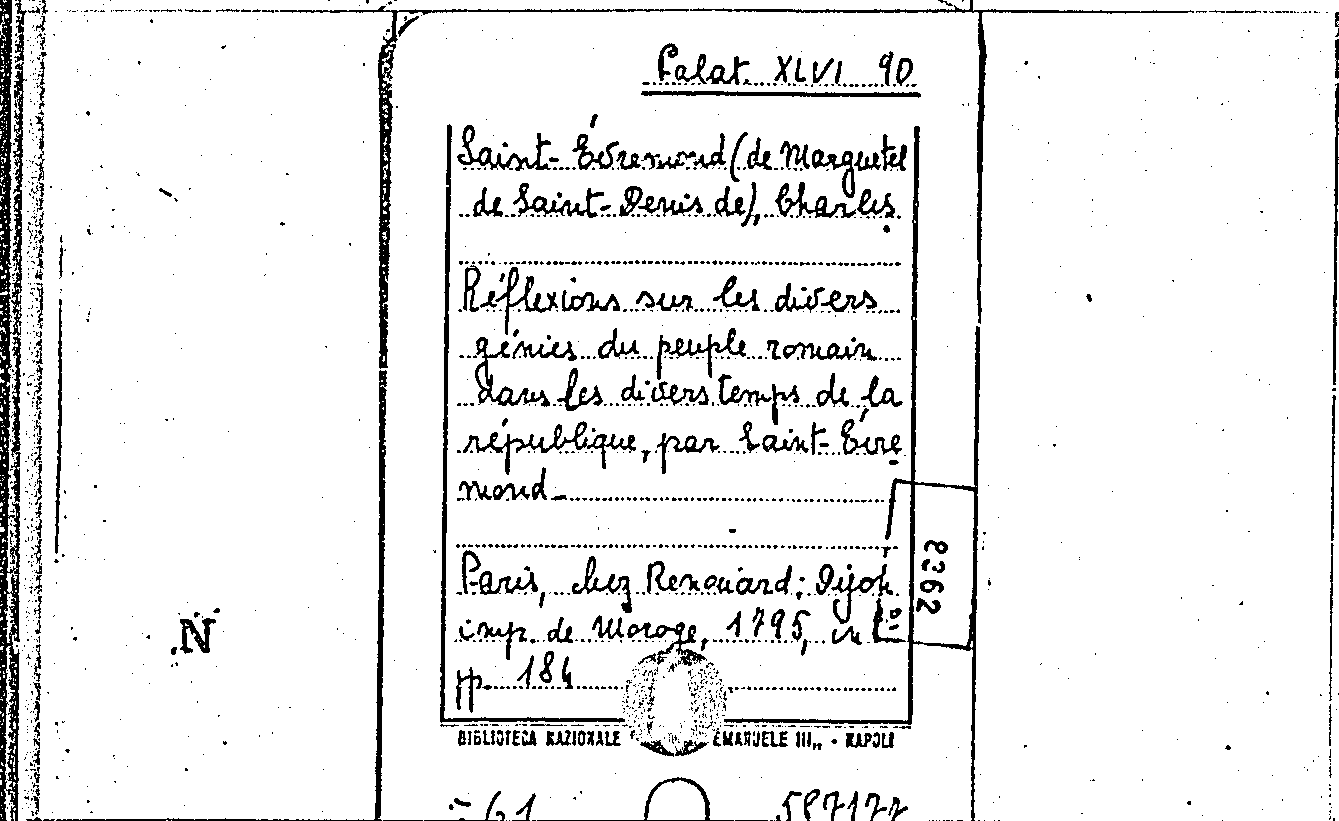 Palat. XLVI 90
Saint-Évremond (de Marguetel
de Saint-Denis de), Charles.
Réflexions sur les divers
génies du peuple romain
dans les divers temps de la
république, par Saint-Évre
mond_
Paris, chez Renouard; Dijon
imp. de Moroge, 1795, in
pp. 184
8362
N
BIBLIOTECA NAZIONALE EMANUELE III,, - NAPOLI